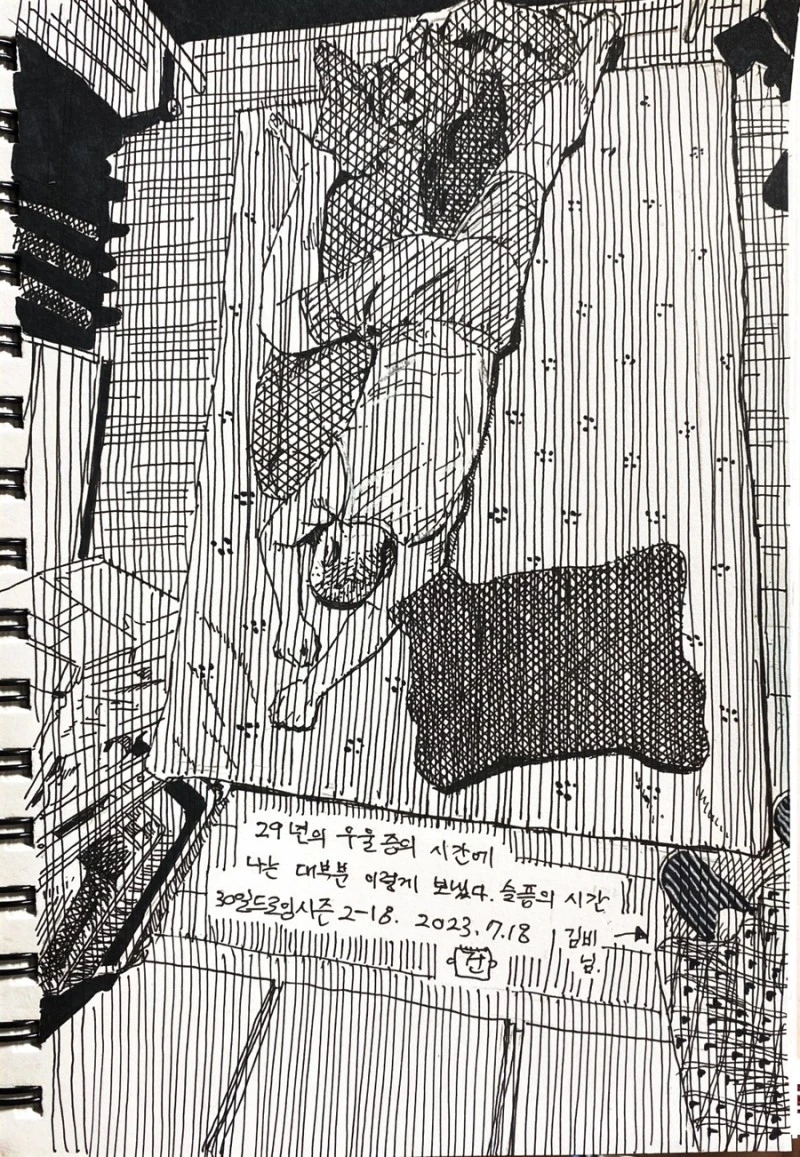 29년의 우울증의 시간에
나는 대부분 이렇게 보냈다. 슬픔의 시간
30일드로잉시즌 2-18. 2023.7.18
김비
님.
단